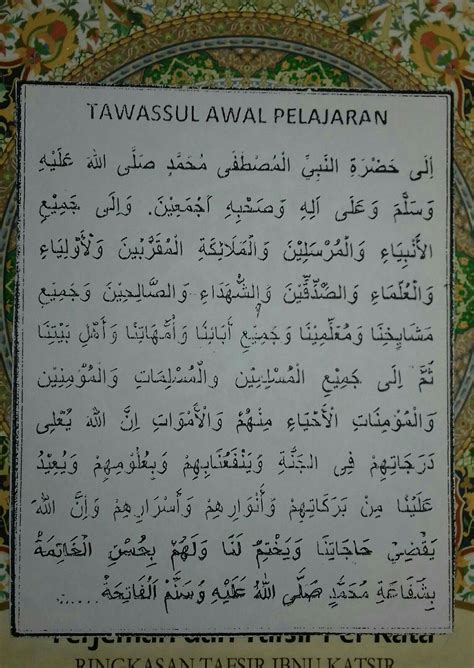 TAWASSUL AWAL PELAJARAN
اِلَى حَضْرَةِ النَّبِيِّ الْمُصْطَفَى مُحَمَّدٍ صَلَّى اللهُ عَلَيْهِ
وَسَلَّمَ وَعَلَى اَلِهِ وَصَحْبِهِ اَجْمَعِيْنَ. وَاِلَى جَمِيْعِ
الْأَنْبِيَاءِ وَالْمُرْسَلِيْنَ وَالْمَلَائِكَةِ الْمُقَرَّبِيْنَ وَلْأَوْلِيَاءِ
وَالْعُلَمَاءِ وَالصِّدِّقِيْنَ وَالشُّهَدَاءِ وَالصَّالِحِيْنَ وَجَمِيْعِ
مَشَايِخِنَا وَمُعَلِّمِيْنَا وَجَمِيْعِ أَبَائِنَا وَأُمَّهَاتِنَا وَأَهْلِ بَيْتِنَا
ثُمَّ اِلَى جَمِيْعِ الْمُسْلِمِيْنَ وَالْمُسْلِمَاتِ وَالْمُؤْمِنِيْنَ
وَالْمُؤْمِنَاتِ الْأَحْيَاءِ مِنْهُمْ وَالْأَمْوَاتِ اِنَّ اللهَ يُعْلِى
دَرَجَاتِهِمْ فِى الْجَنَّةِ وَيَنْفَعُنَابِهِمْ وَبِعُلُوْمِهِمْ وَيُعِيْدُ
عَلَيْنَا مِنْ بَرَكَاتِهِمْ وَأَنْوَارِهِمْ وَأَسْرَارِهِمْ وَاِنَّ اللهَ
يَقْضِيْ حَاجَاتِنَا وَيَخْتِمُ لَنَا وَلَهُمْ بِحُسْنِ الْخَاتِمَةْ
بِشَفَاعَةِ مُحَمَّدٍ صَلَّى اللهُ عَلَيْهِ وَسَلَّمْ اَلْفَاتِحَةْ.......
Terjemah dan Tafsir Per Kata
RINGKASAN TAFSIR IBNU KATSIR